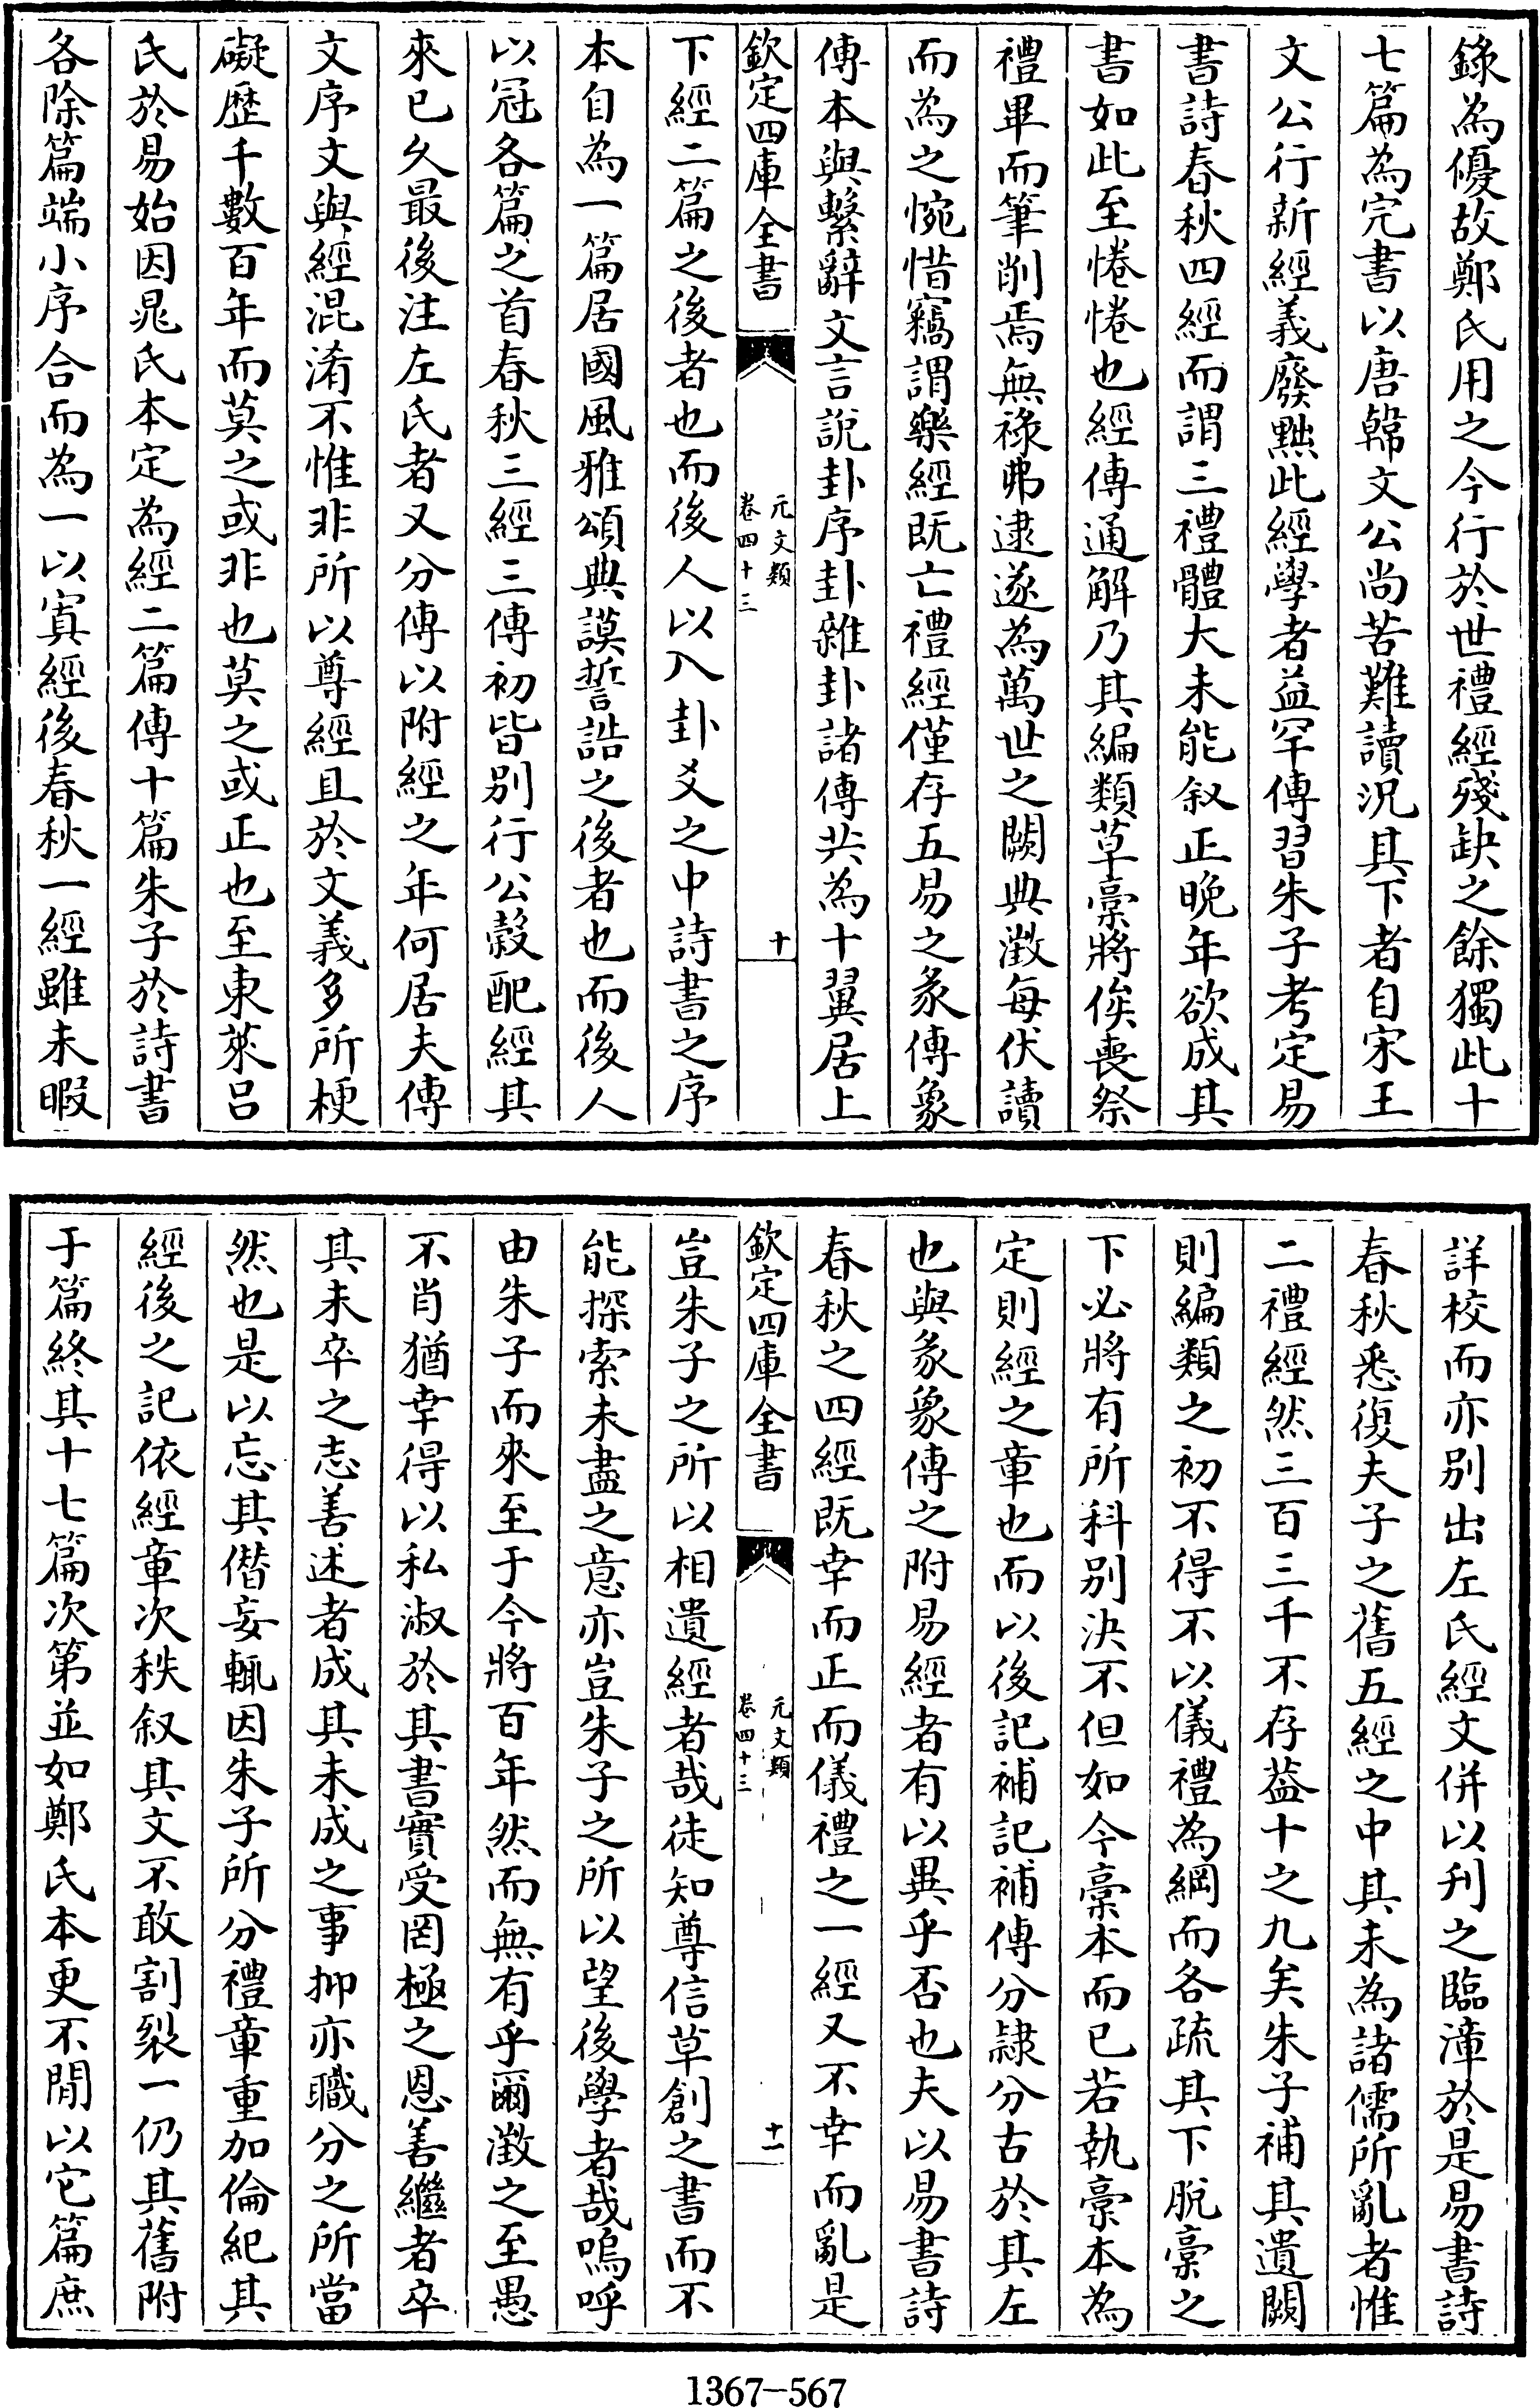 錄為優故鄭氏用之今行於世禮經殘缺之餘獨此十
七篇為完書以唐韓文公尚苦難讀況其下者自宋王
文公行新經義廢黜此經學者益罕傳習朱子考定易
書詩春秋四經而謂三禮體大未能叙正晚年欲成其
書如此至惓惓也經傳通解乃其編類草藁將俟喪祭
禮畢而筆削焉無祿弗逮遂為萬世之闕典澂每伏讀
而為之惋惜竊謂樂經既亡禮經僅存五易之彖傳象
傳本與繫辭文言說卦序卦雜卦諸傳共為十翼居上
欽定四庫全書
元文類
卷四十三
十
下經二篇之後者也而後人以入卦爻之中詩書之序
本自為一篇居國風雅頌典謨誓誥之後者也而後人
以冠各篇之首春秋三經三傳初皆别行公穀配經其
來已久最後注左氏者又分傳以附經之年何居夫傳
文序文與經混淆不惟非所以尊經且於文義多所梗
礙歷千數百年而莫之或非也莫之或正也至東萊呂
氏於易始因晁氏本定為經二篇傳十篇朱子於詩書
各除篇端小序合而為一以寘經後春秋一經雖未暇
詳校而亦别出左氏經文併以刋之臨漳於是易書詩
春秋悉復夫子之舊五經之中其未為諸儒所亂者惟
二禮經然三百三千不存葢十之九矣朱子補其遺闕
則編類之初不得不以儀禮為綱而各疏其下脫藁之
下必將有所科别決不但如今藁本而已若執藁本為
定則經之章也而以後記補記補傳分隷分古於其左
也與彖象傳之附易經者有以異乎否也夫以易書詩
春秋之四經既幸而正而儀禮之一經又不幸而亂是
欽定四庫全書
元文類
卷四十三
十一
豈朱子之所以相遺經者哉徒知尊信草創之書而不
能探索未盡之意亦豈朱子之所以望後學者哉嗚呼
由朱子而來至于今將百年然而無有乎爾澂之至愚
不肖猶幸得以私淑於其書實受罔極之恩善繼者卒
其未卒之志善述者成其未成之事抑亦職分之所當
然也是以忘其僭妄輒因朱子所分禮章重加倫紀其
經後之記依經章次秩叙其文不敢割裂一仍其舊附
于篇終其十七篇次第並如鄭氏本更不間以它篇庶
1367-567